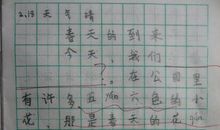 2.13 天气晴
春天的到来
今天,我们
在公园里
有许多五yán六色的小
花,那是春天的花